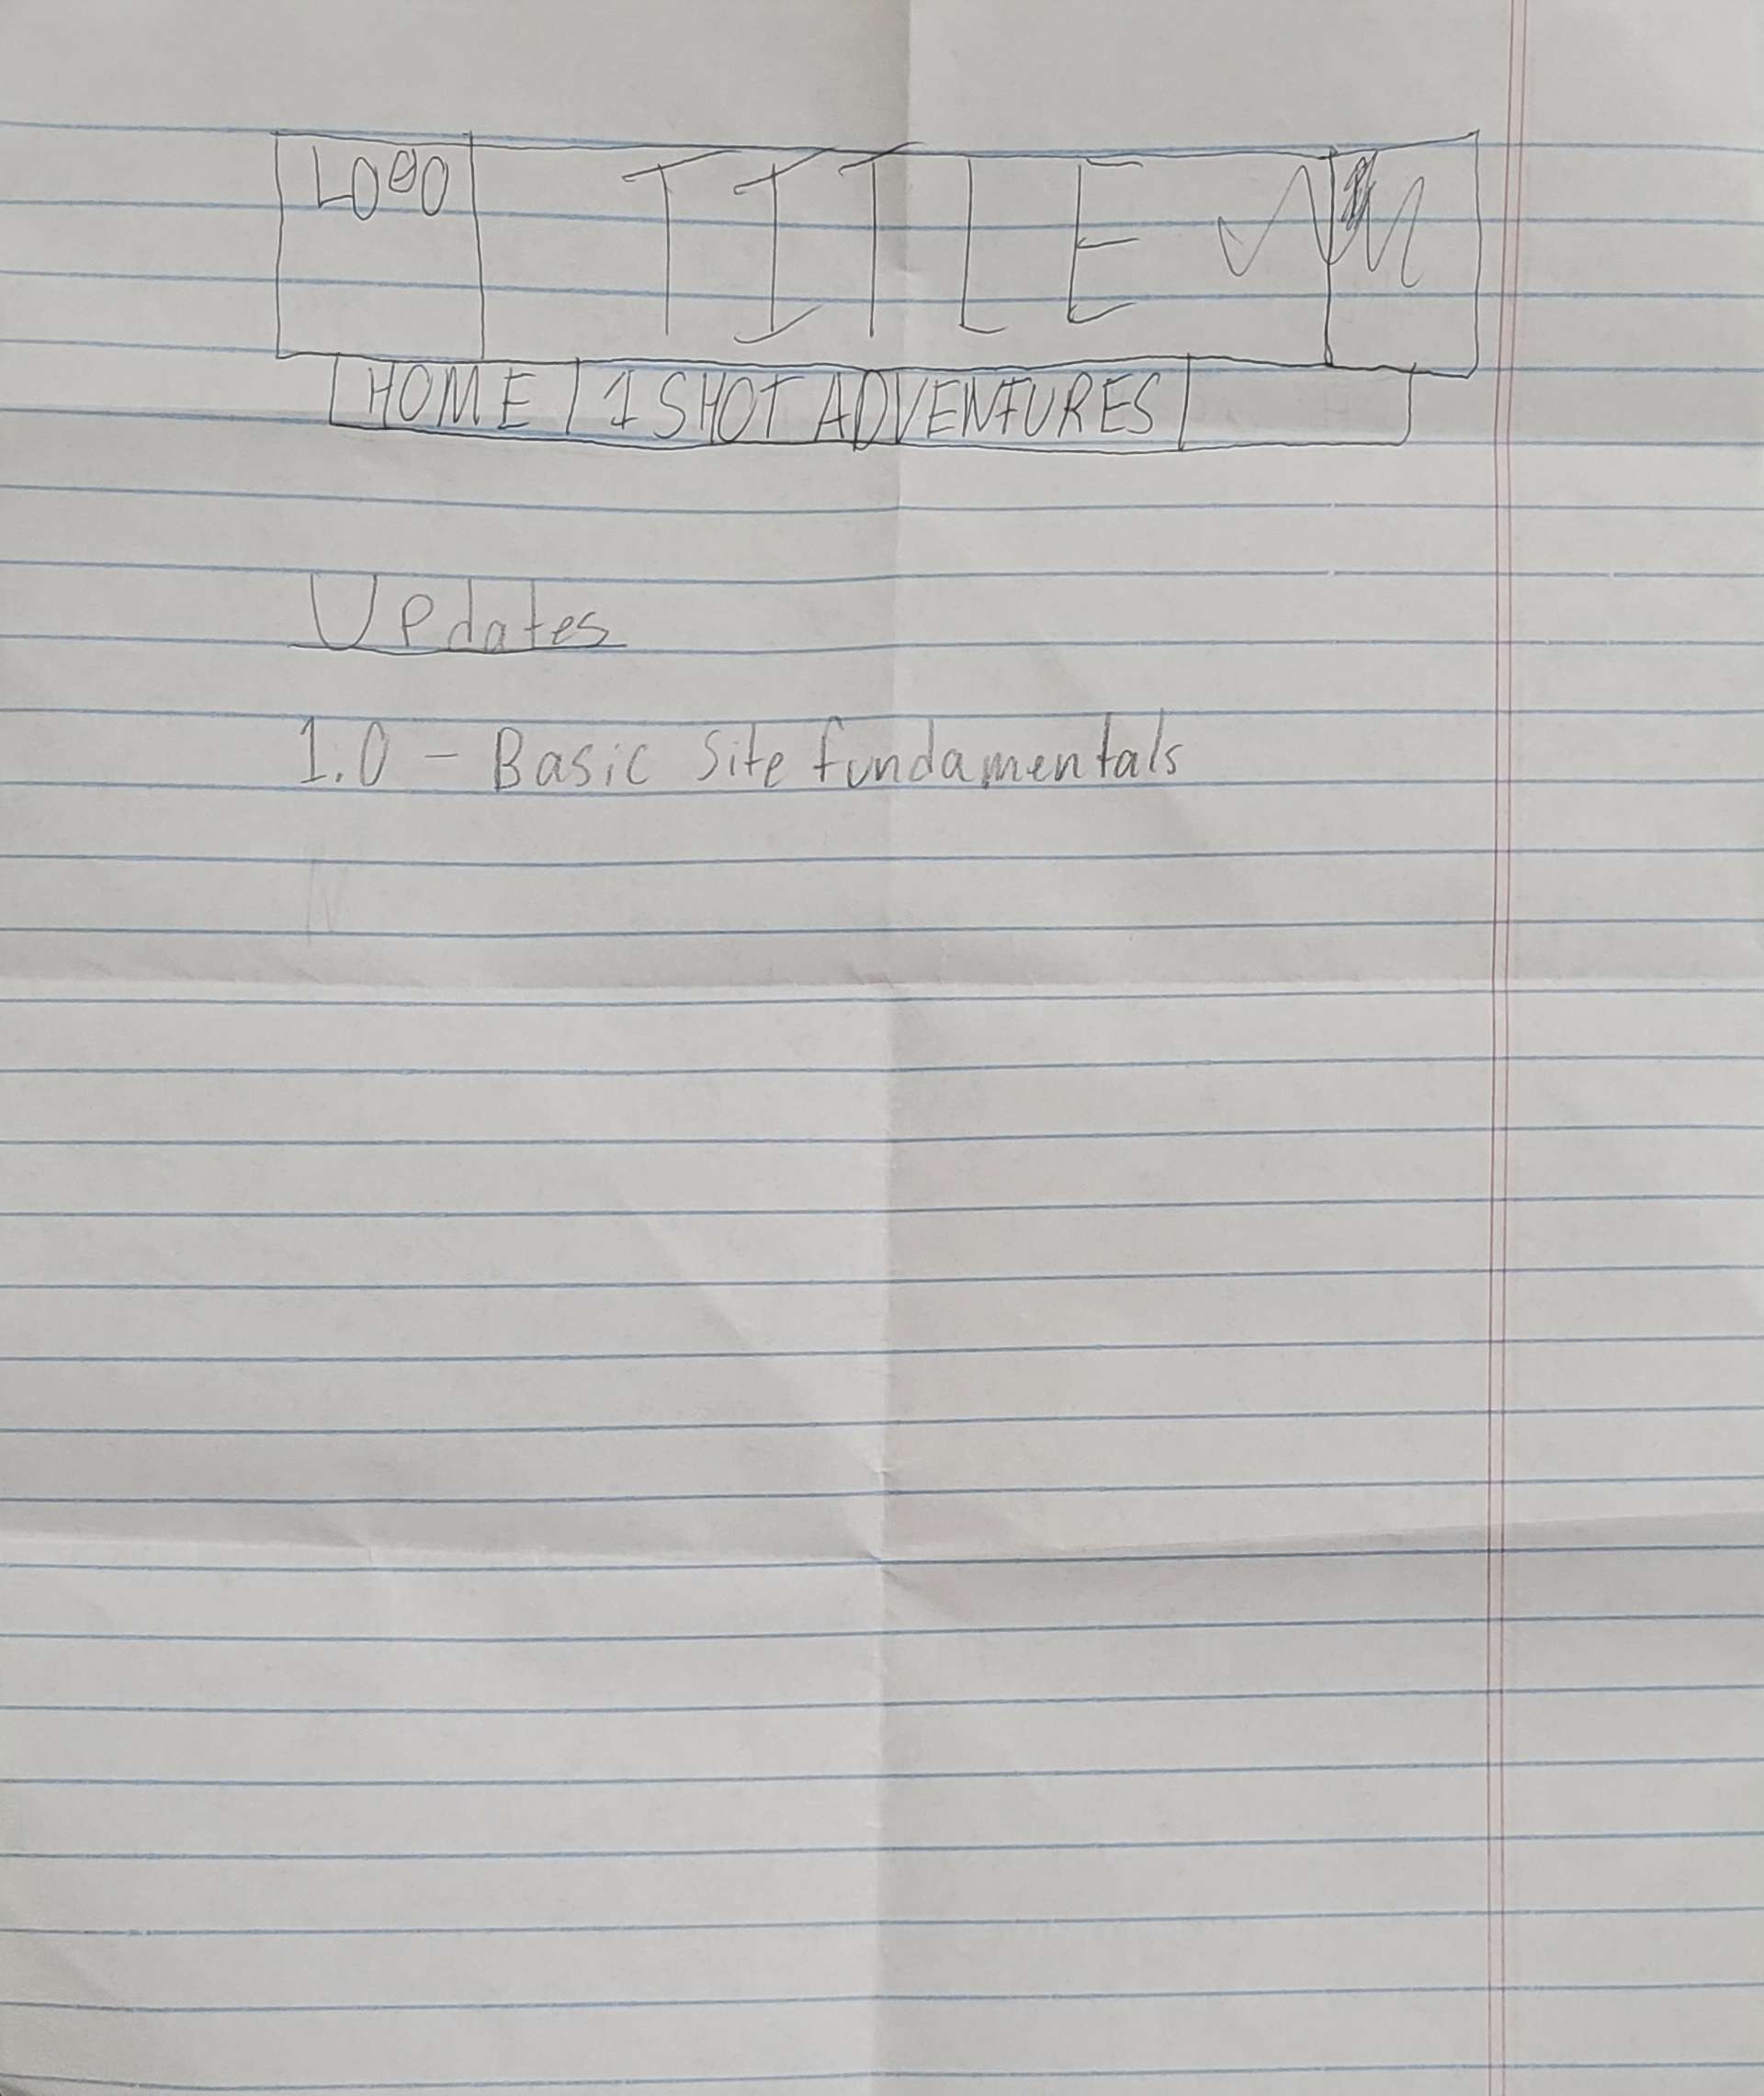 LOgO TITLE
HOME 1 SHOT ADVENTURES
Updates
1.0 - Basic Site fundamentals